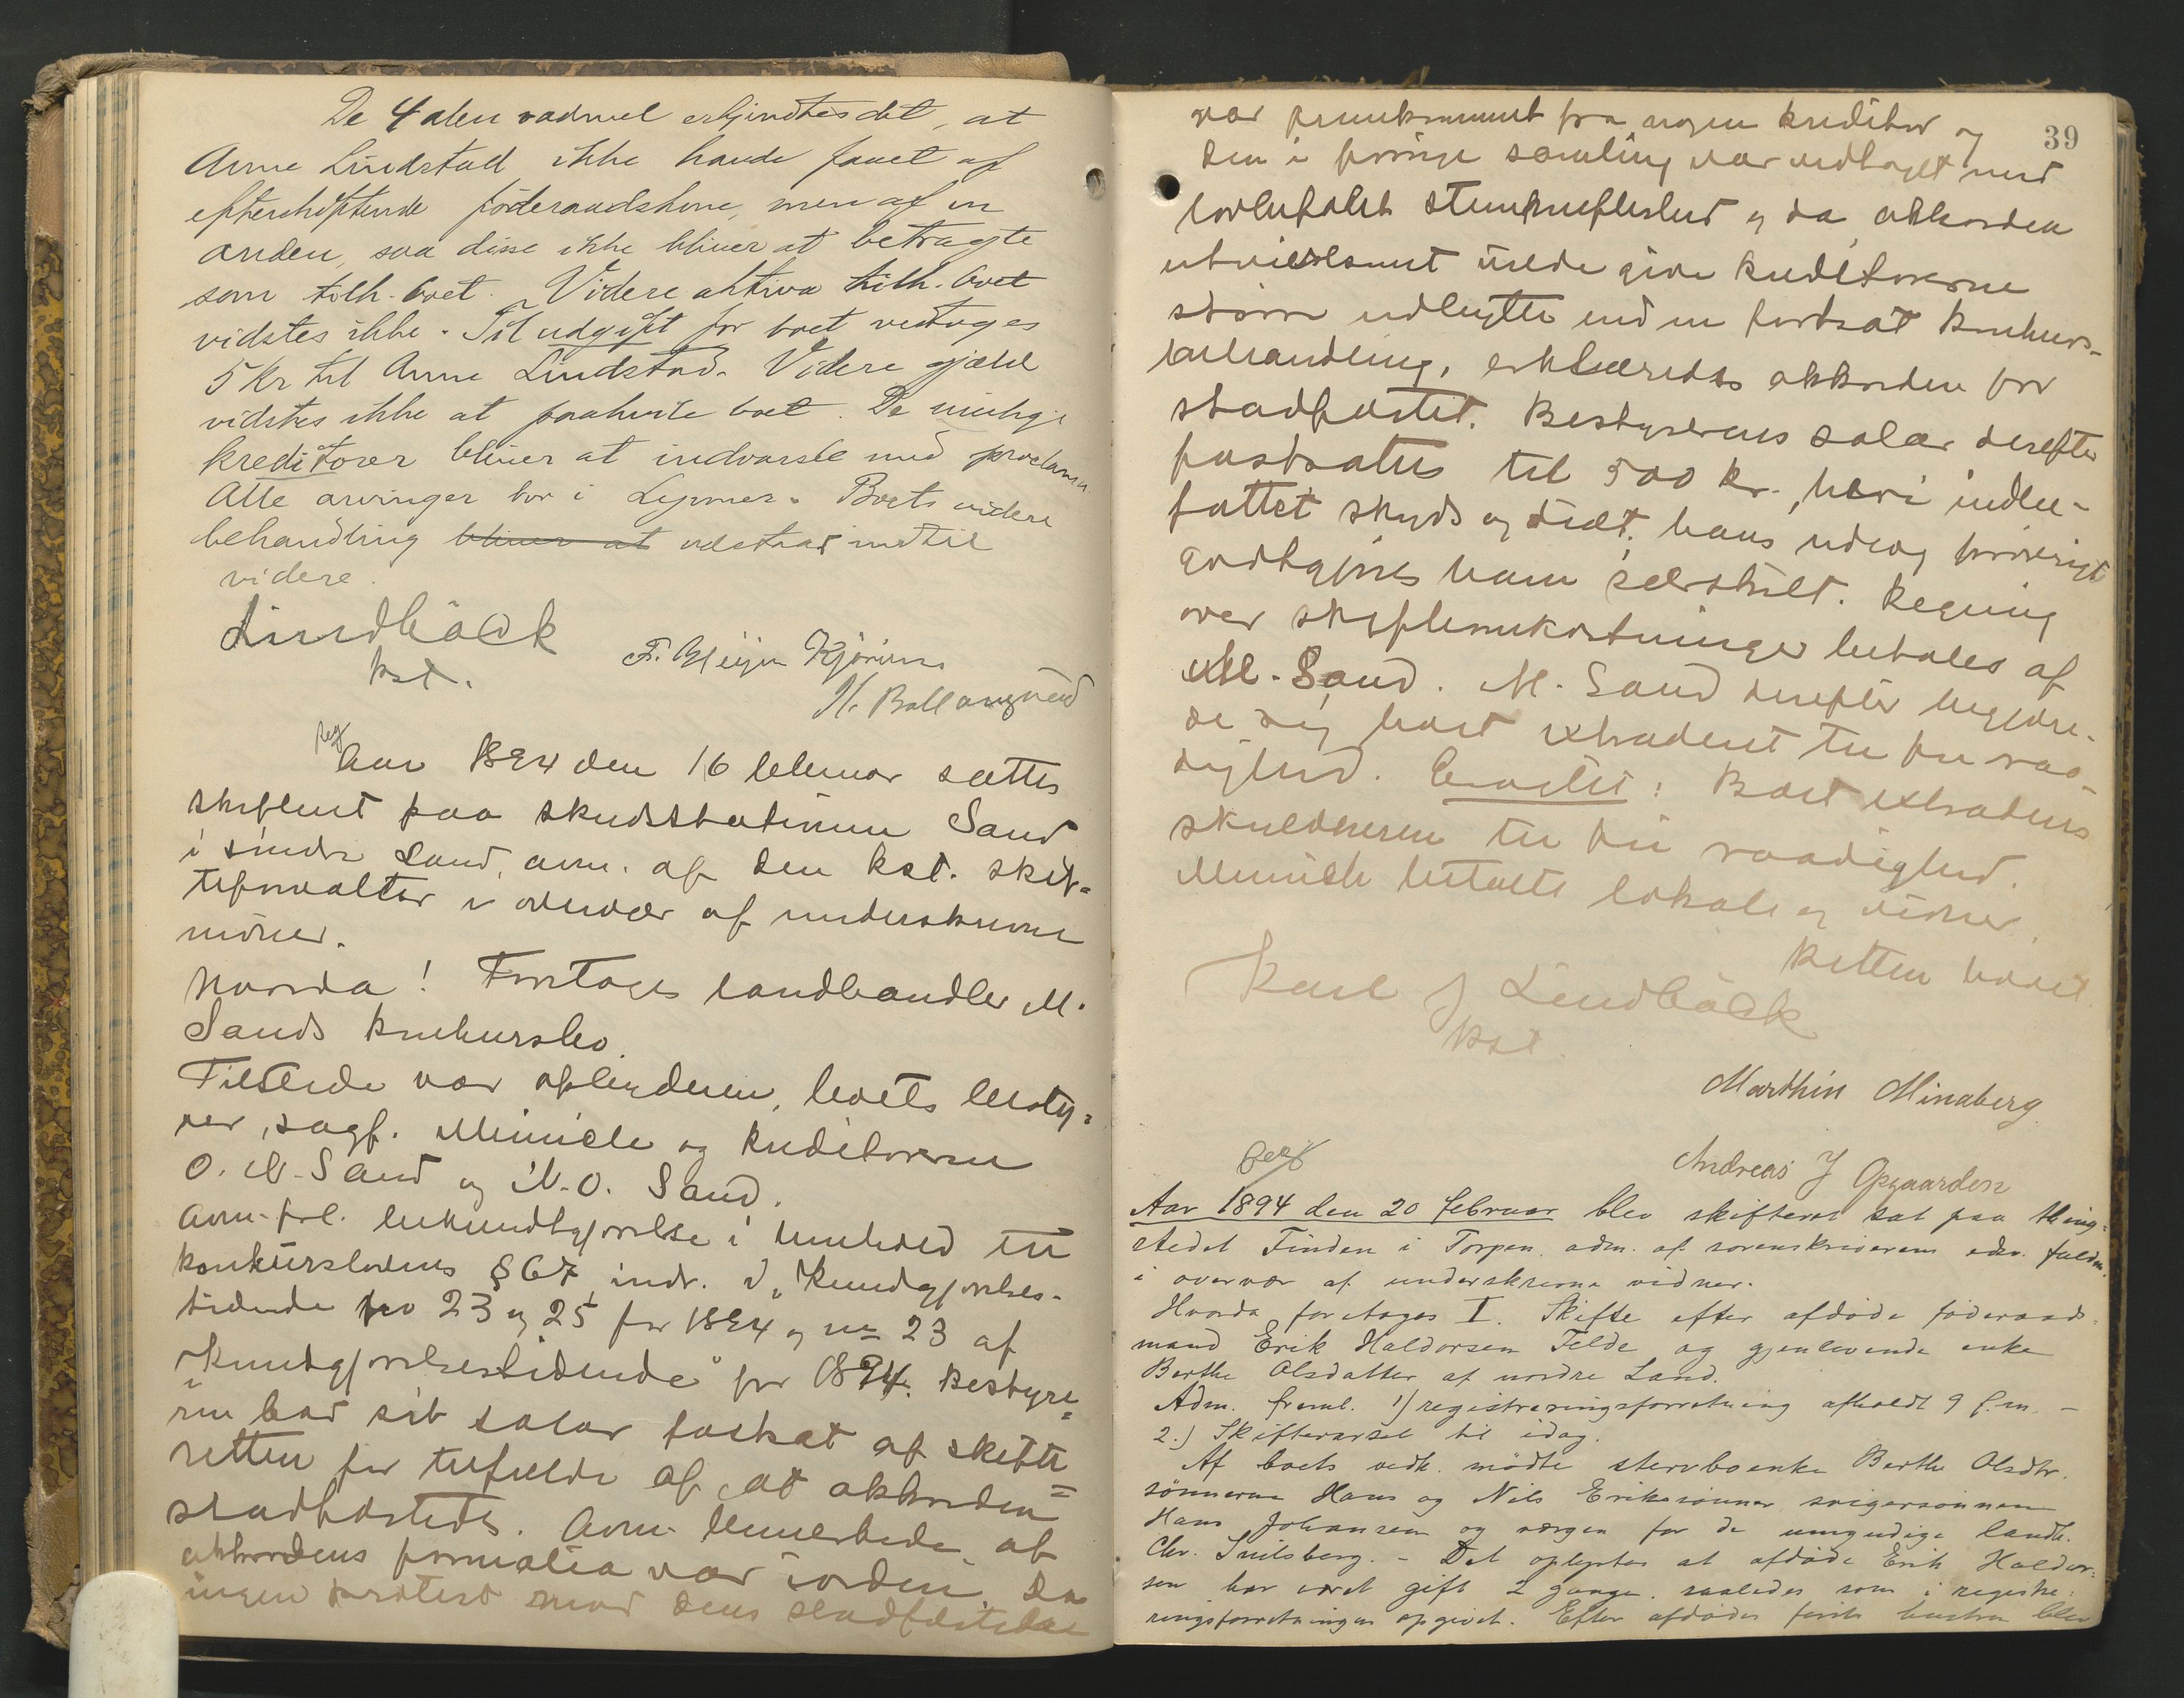 De 4 alen vadmel erkjendtes det, at
Anne Lindstad ikke havde faaet af
efterskiftende föderaadskone, men af en
anden, saa disse ikke bliver at betragte
som tilh. boet. Videre aktiva tilh. boet
vidstes ikke. Til udgift for boet vedtoges
5 kr til Anne Lindstad. Videre gjæld
vidstes ikke at paahvile boet. De mulige
kreditorer bliver at indvarsle med proclama.
Alle arvinger bor i Lunner. Boets videre
behandling bliver at udstaar indtil
videre.
Lindbäck
kst.
F. Kjørven
H. Ballangrud
Reg
Aar 1894 den 16 februar sattes
skifteret paa skydsstationen Sand
i söndre Land, adm. af den kst. skif-
teforvalter i overvær af underskrevne
vidner.
Hvorda! Foretoges landhandler M.
Sands konkursbo.
Tilstede var opbyderen, boets besty-
rer, sagf. Münich og kreditorerne
O. M. Sand og N. O. Sand.
Adm. frl. bekjendtgjørelse i henhold til
konkurslovens § 67, indr. i "Kundgjørelses-
tidende no 23 og 25 for 1894 og no 23 af
"Kundgjørelsestidende" for 1894. Bestyre-
ren bad sit salær fastsat af skifte-
retten for tilfælde af at akkorden
stadfæstedes. Adm. bemerkede, at
akkordens formalia var iorden. Da
ingen protest mod dens stadfæstelse
39
var fremkommet fra nogen kreditor og
den i forrige samling var vedtaget med
lovbefalet stemmeflerhed og da akkorden
utvivlsomt vilde give kreditorerne
större udbytte end en fortsat konkurs-
behandling, erklæredes akkorden for
stadfæstet. Bestyrerens salær derefter
fastsattes til 500 kr., heri indbe-
fattet skyds og diæt, hans udlæg forövrigt
godtgjöres ham særskilt. Regning
over skifteomkostninger betales af
M. Sand. M. Sand derefter begjære-
de sig boet extraderet til fri raa-
dighed. Eragtet: Boet extraderes
skyldneren til fri raadighed.
Münich betalte lokale og vidner.
Retten hævet.
Karl J Lindbäck
kst.
Marthin Minaberg.
Andreas J Opgaarden
Aar 1894 den 20 februar blev skifteret sat paa thing-
stedet Finden i Torpen. adm. af sorenskriverens edsv. fuldm.
i overvær af underskrevne vidner.
Hvorda foretages I. Skifte efter afdøde föderaads-
mand Erik Haldorsen Felde og gjenlevende enke
Berthe Olsdatter af nordre Land.
Adm. freml. 1) registreringsforretning afholdt 9 f.m. -
2.) Skiftevarsel til idag.
Af boets vedk. mödte stervboenke Berthe Olsdtr.
sönnerne Hans og Nils Erikssönner svigersønnen
Hans Johansen og værgen for de umyndige landh.
Chr. Snilsberg. - Det oplystes at afdöde Erik Haldor-
sen har været gift 2 gange. saaledes som i registre-
ringsforretningen opgivet. Efter afdödes første hustru blev